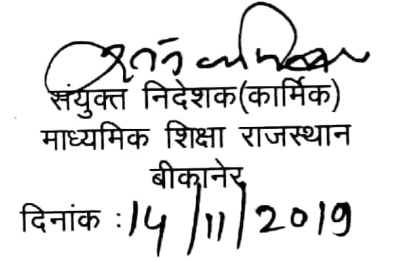 संयुक्त निदेशक(कार्मिक)
माध्यमिक शिक्षा राजस्थान
बीकानेर
दिनांक :14/11/2019